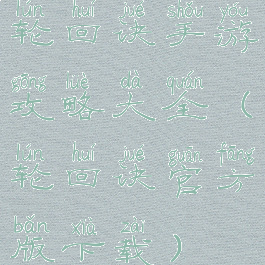 lún huí jué shǒu yóu
轮回诀手游
gōng lüè dà quán
攻略大全（
lún huí jué guān fāng
轮回诀官方
bǎn xià zài
版下载）